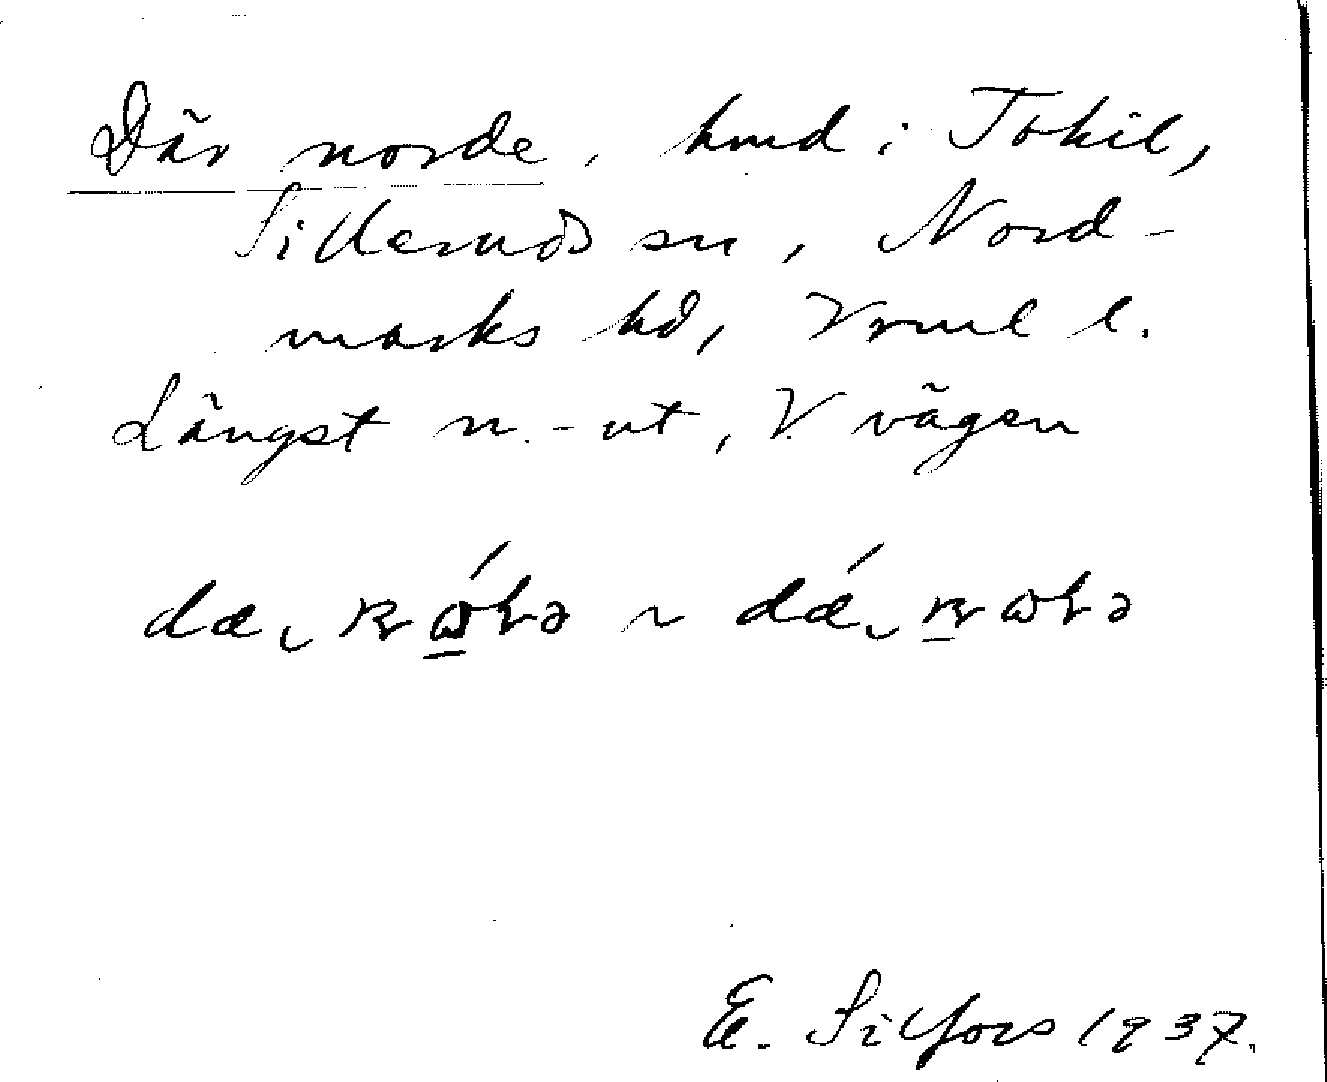 Där norde, hmd i Tokil,
Sillerud sn, Nord-
marks hd, Vrml l.
Längst n.-ut, V. vägen
E. Silfors 1937.